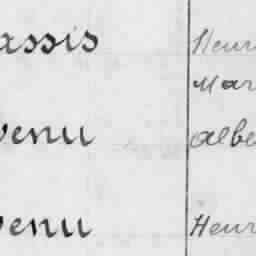 assis Henr
Mar
venu Albe
venu Henr